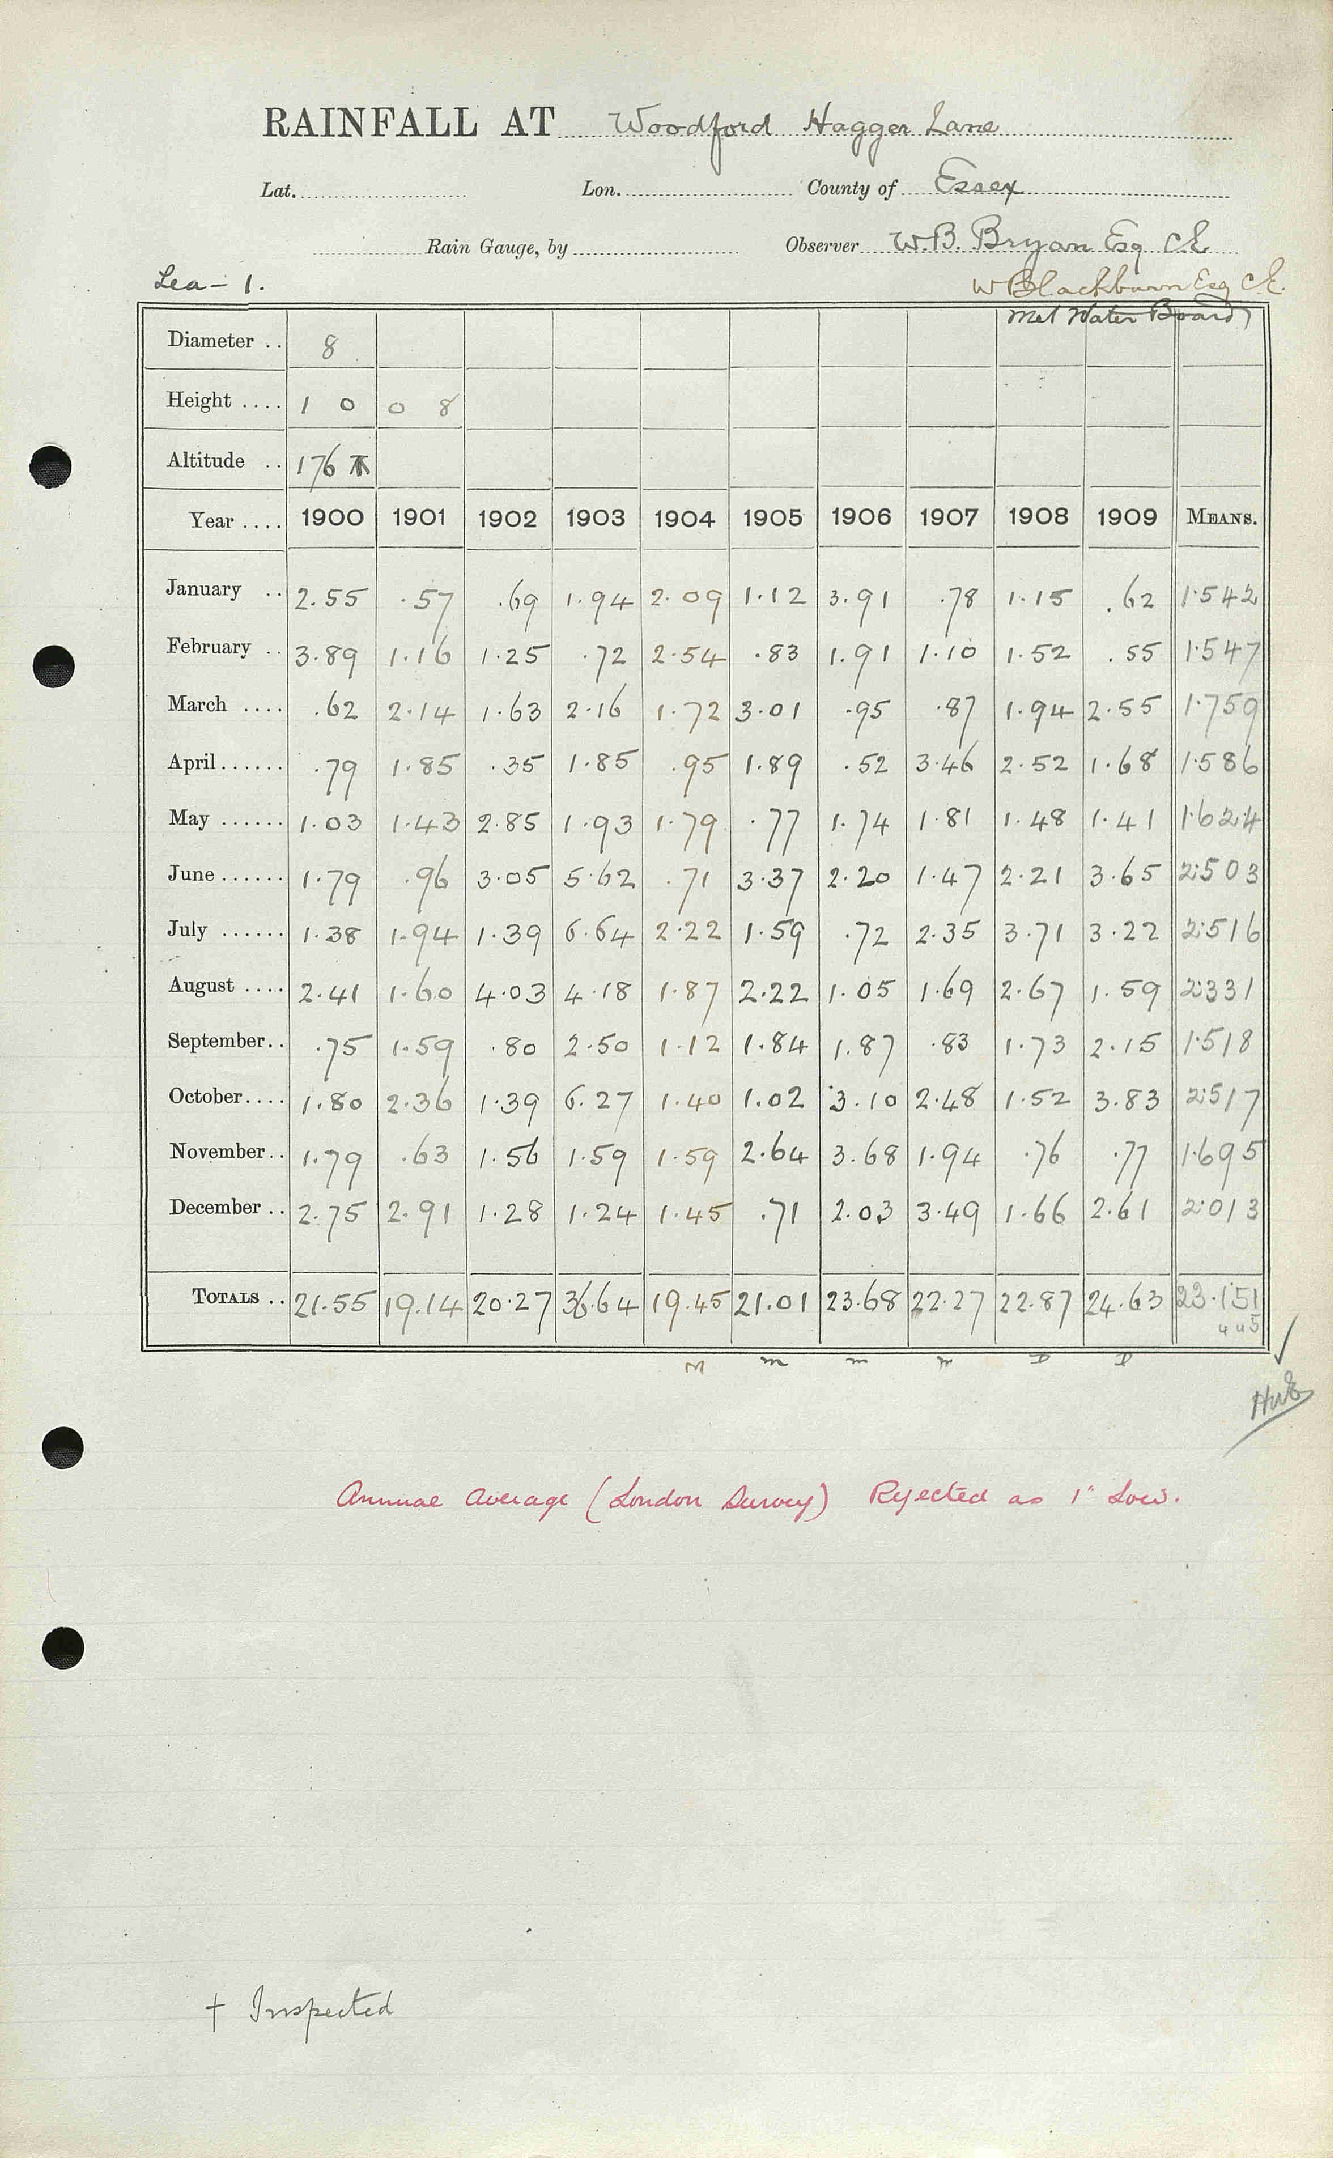 RAINFALL AT Woodford Hagger Lane
Lat. Lon. County of Essex
Rain Gauge, by Observer W.B. Bryan Esq C.E.
Lea - 1. W Blackburn Esq C.E.
Met Water Board
Diameter .. 8
Height .... 1 0 0 8
Altitude .. 176
Year .... 1900 1901 1902 1903 1904 1905 1906 1907 1908 1909 MEANS.
January .. 2.55 .57 .69 1.94 2.09 1.12 3.91 .78 1.15 .62 1.542
February .. 3.89 1.16 1.25 .72 2.54 .83 1.91 1.10 1.52 .55 1.547
March .... .62 2.14 1.63 2.16 1.72 3.01 .95 .87 1.94 2.55 1.759
April ...... .79 1.85 .35 1.85 .95 1.89 .52 3.46 2.52 1.68 1.586
May ...... 1.03 1.43 2.85 1.93 1.79 .77 1.74 1.81 1.48 1.41 1.624
June ...... 1.79 .96 3.05 5.62 .71 3.37 2.20 1.47 2.21 3.65 2.503
July ...... 1.38 1.94 1.39 6.64 2.22 1.59 .72 2.35 3.71 3.22 2.516
August .... 2.41 1.60 4.03 4.18 1.87 2.22 1.05 1.69 2.67 1.59 2.331
September .. .75 1.59 .80 2.50 1.12 1.84 1.87 .83 1.73 2.15 1.518
October .... 1.80 2.36 1.39 6.27 1.40 1.02 3.10 2.48 1.52 3.83 2.517
November .. 1.79 .63 1.56 1.59 1.59 2.64 3.68 1.94 .76 .77 1.695
December .. 2.75 2.91 1.28 1.24 1.45 .71 2.03 3.49 1.66 2.61 2.013
TOTALS .. 21.55 19.14 20.27 36.64 19.45 21.01 23.68 22.27 22.87 24.63 23.151
M m m m D D
Annual Average (London Survey) Rejected as 1" Low.
† Inspected